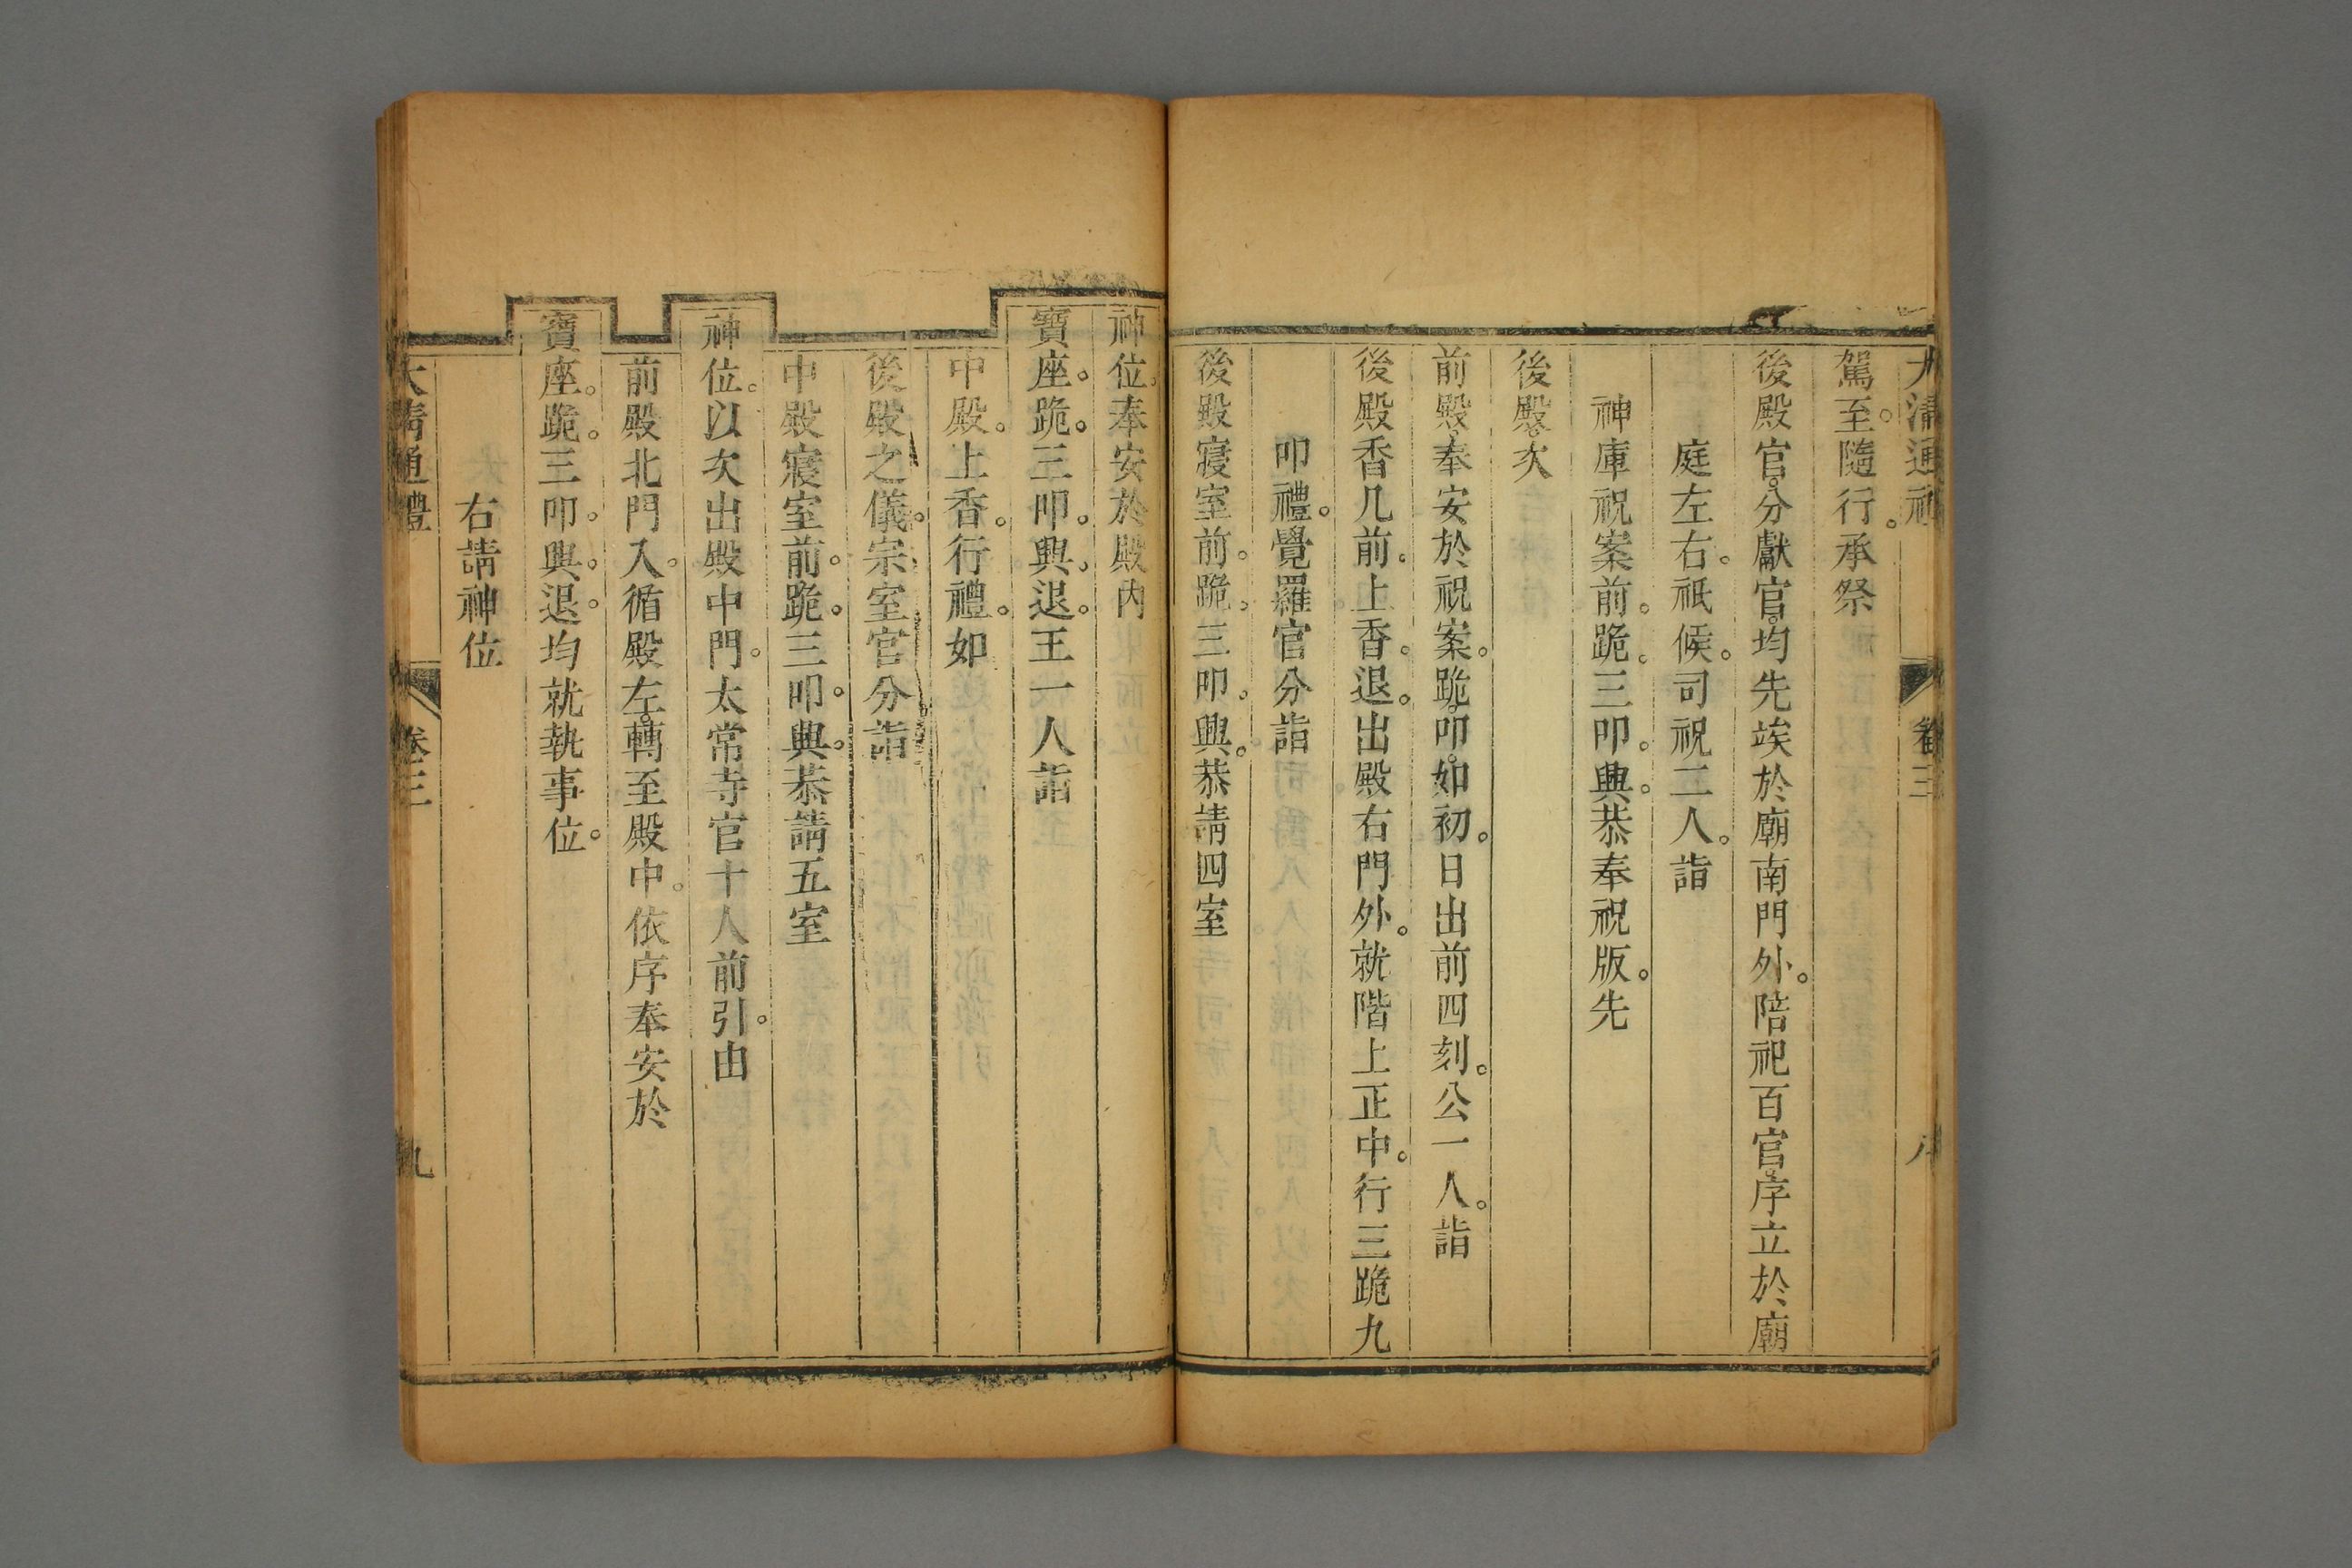 大清通禮 卷三 八
駕至。隨行。承祭
後殿官。分獻官。均先竢於廟南門外。陪祀百官。序立於廟
庭左右。祗候。司祝二人。詣
神庫祝案前。跪。三叩。興。恭奉祝版。先
後殿。次
前殿。奉安於祝案。跪。叩。如初。日出前四刻。公一人。詣
後殿香几前。上香。退。出殿右門外。就階上正中。行三跪九
叩禮。覺羅官分詣
後殿寢室前。跪。三叩。興。恭請四室
神位。奉安於殿內
寶座。跪。三叩。興。退。王一人詣
中殿。上香。行禮。如
後殿之儀。宗室官分詣
中殿寢室前。跪。三叩。興。恭請五室
神位。以次出殿中門。太常寺官十人前引。由
前殿北門入。循殿左。轉至殿中。依序奉安於
寶座。跪。三叩。興。退。均就執事位。
右請神位
大清通禮 卷三 九